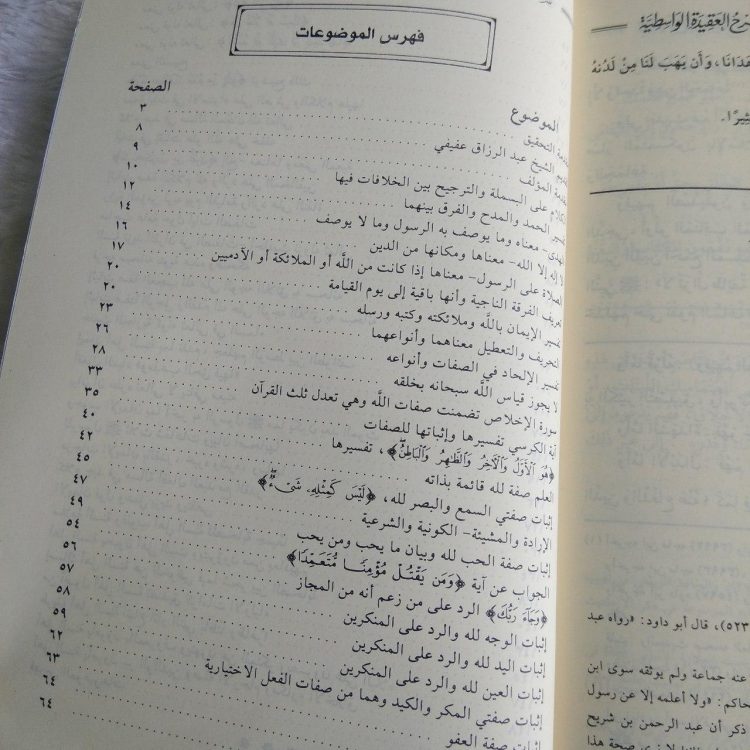 شرح العقيدة الواسطية
هَدَانَا، وَأَن يَهَبَ لَنَا مِنْ لَدُنهُ
٥٢٣)، قال أبو داود: «رواه عبد
عنه جماعة ولم يوثقه سوى ابن
حاكم: «ولا أعلمه إلا عن رسول
ذكر أن عبد الرحمن بن شريح
صحة هذا
فهرس الموضوعات
الموضوع الصفحة
مقدمة التحقيق ٣
تقديم الشيخ عبد الرزاق عفيفي ٨
مقدمة المؤلف ٩
الكلام على البسملة والترجيح بين الخلافات فيها ١٠
تفسير الحمد والمدح والفرق بينهما ١٢
الهدى- معناه وما يوصف به الرسول وما لا يوصف ١٤
لا إله إلا الله- معناها ومكانها من الدين ١٦
الصلاة على الرسول- معناها إذا كانت من اللَّه أو الملائكة أو الآدميين ١٧
تعريف الفرقة الناجية وأنها باقية إلى يوم القيامة ٢٠
تفسير الإيمان باللَّه وملائكته وكتبه ورسله ٢٠
التحريف والتعطيل معناهما وأنواعهما ٢٣
تفسير الإلحاد في الصفات وأنواعه ٢٦
لا يجوز قياس اللَّه سبحانه بخلقه ٢٨
سورة الإخلاص تضمنت صفات اللَّه وهي تعدل ثلث القرآن ٣٣
آية الكرسي تفسيرها وإثباتها للصفات ٣٥
﴿هُوَ ٱلْأَوَّلُ وَٱلْآخِرُ وَٱلظَّاهِرُ وَٱلْبَاطِنُ﴾، تفسيرها ٤٠
العلم صفة لله قائمة بذاته ٤٢
إثبات صفتي السمع والبصر لله، ﴿لَيْسَ كَمِثْلِهِ شَىْءٌ﴾ ٤٥
الإرادة والمشيئة- الكونية والشرعية ٤٧
إثبات صفة الحب لله وبيان ما يحب ومن يحب ٤٩
الجواب عن آية ﴿وَمَن يَقْتُلْ مُؤْمِنًا مُّتَعَمِّدًا﴾ ٥٤
﴿وَجَآءَ رَبُّكَ﴾ الرد على من زعم أنه من المجاز ٥٦
إثبات الوجه لله والرد على المنكرين ٥٧
إثبات اليد لله والرد على المنكرين ٥٨
إثبات العين لله والرد على المنكرين ٥٩
إثبات صفتي المكر والكيد وهما من صفات الفعل الاختيارية ٦٢
إثبات صفة العفو ٦٣
٦٤
٦٤